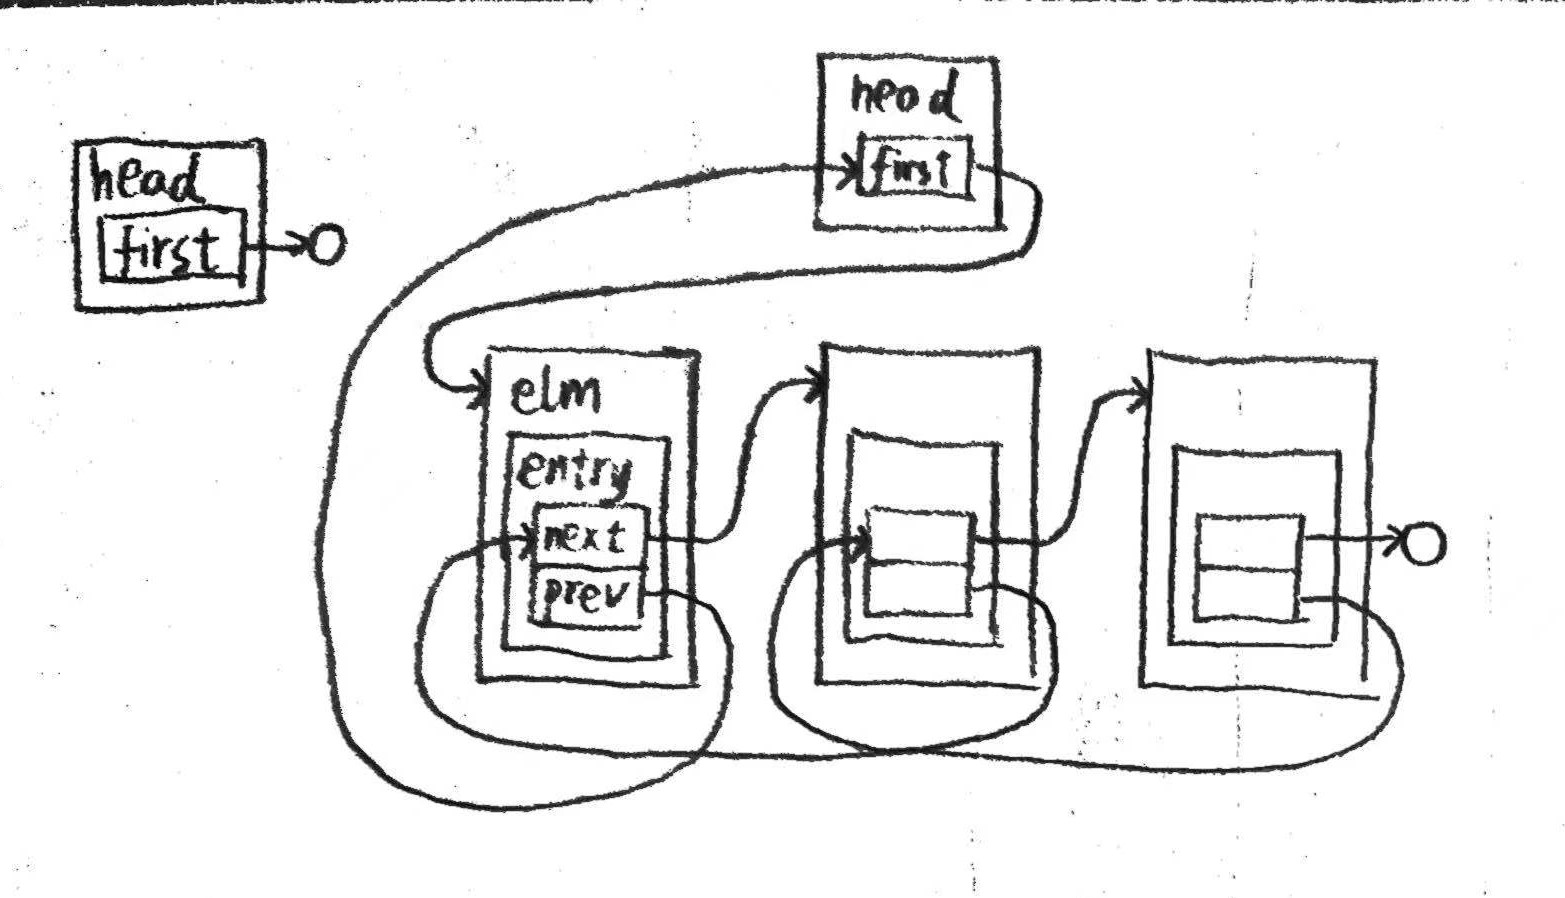 head
first
head
first
elm
entry
next
prev